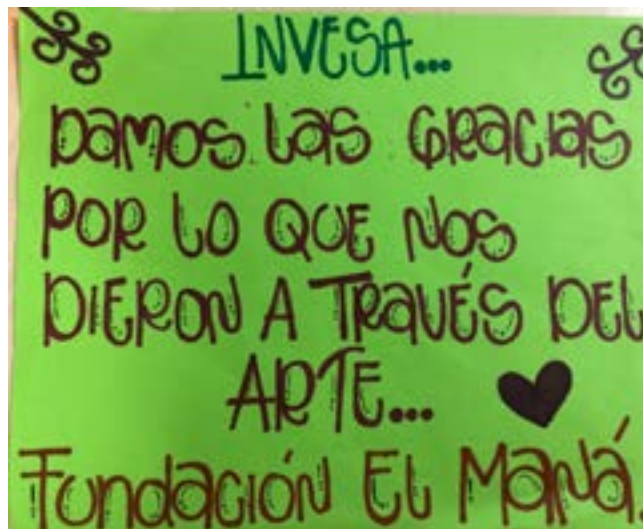 INVESA...
DAMOS LAS GRACIAS
POR LO QUE NOS
DIERON A TRAVÉS DEL
ARTE...
FUNDACIÓN EL MANÁ